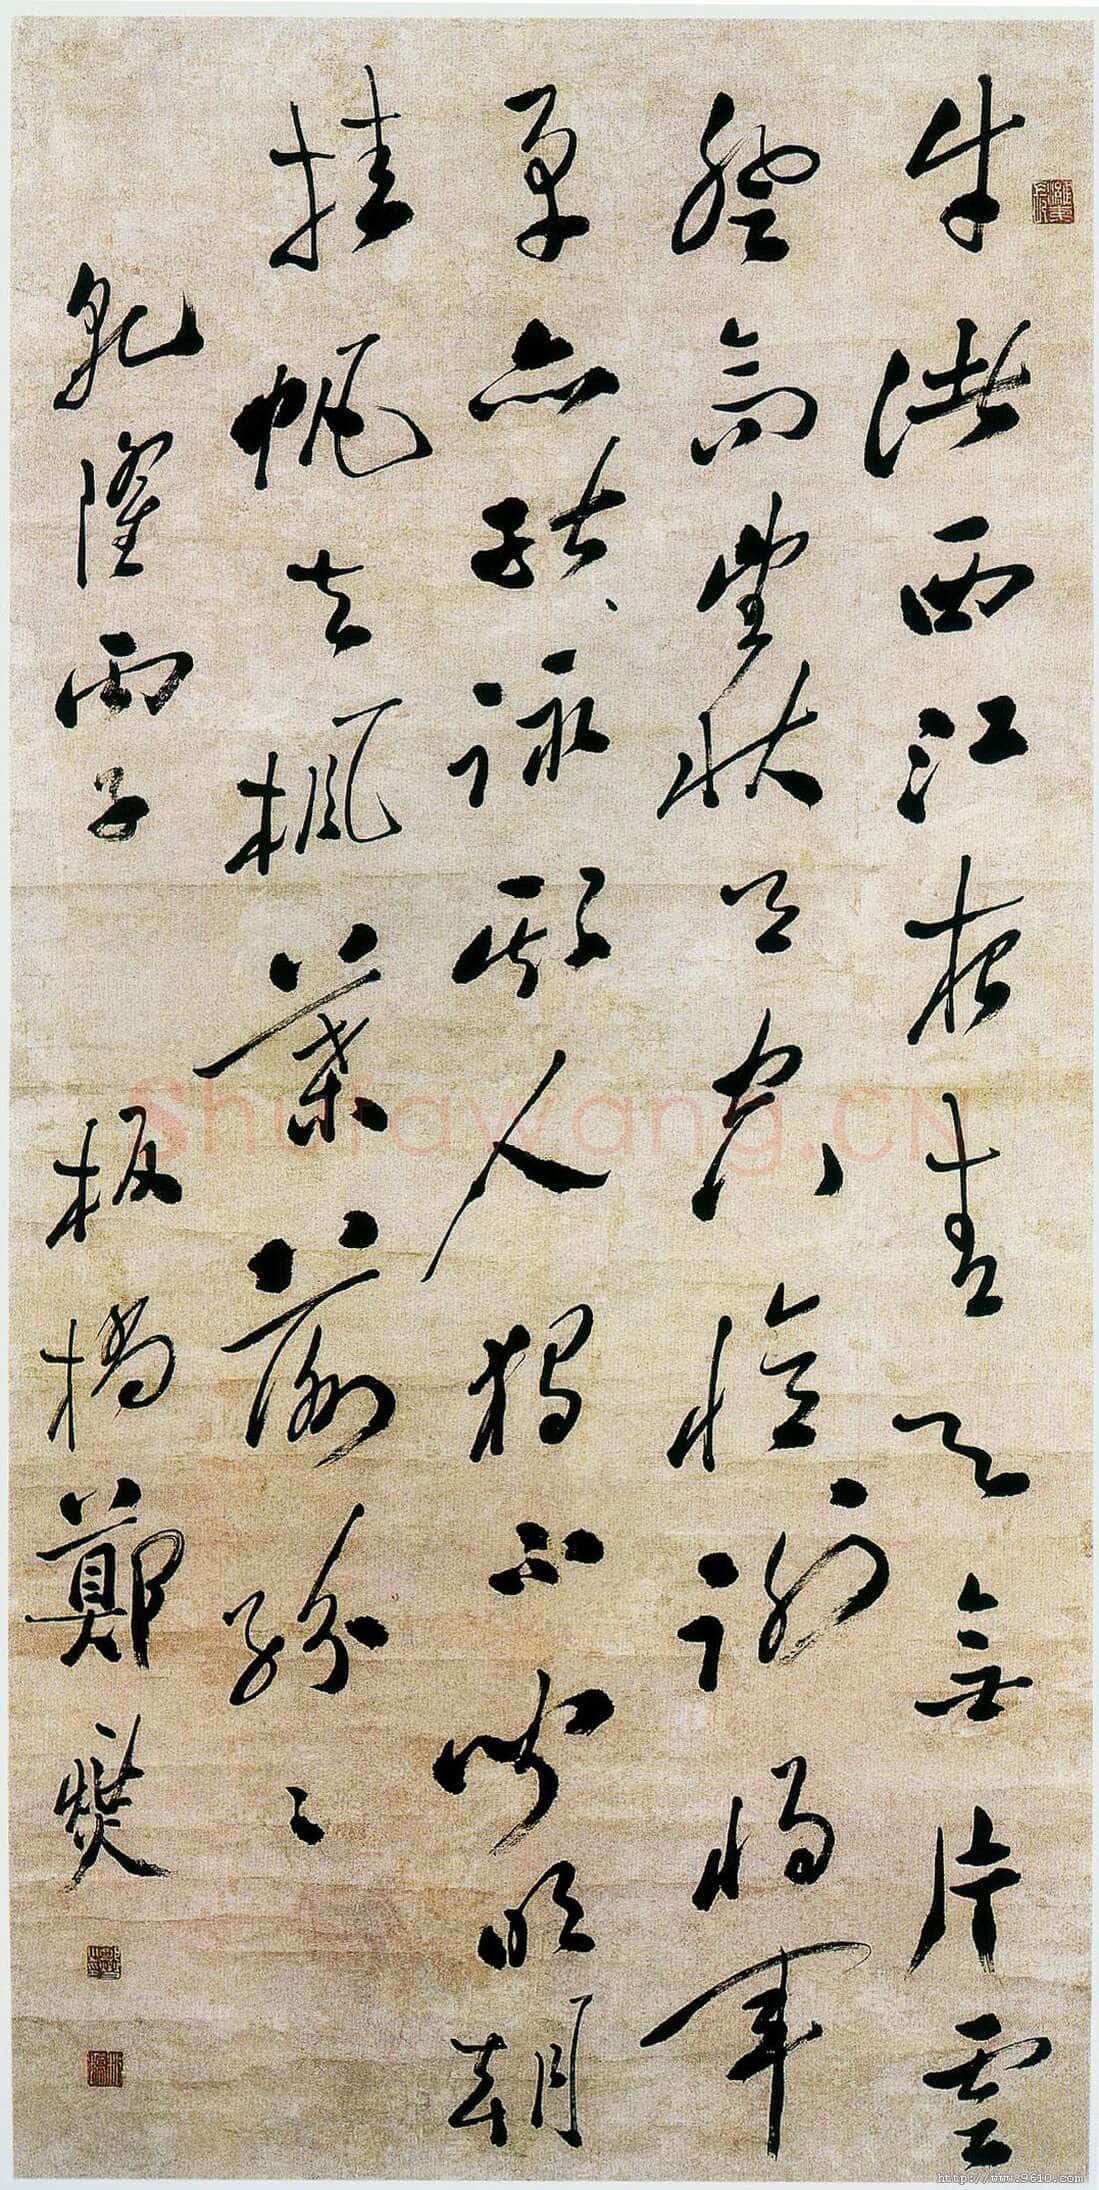 牛渚西江夜青天無片雲
登高望秋月空憶謝將軍
亦能詠斯人獨不聞明朝
挂帆去楓葉落紛〻
乾隆丙子 板橋鄭燮
Shufawang.CN
http://www.9610.com